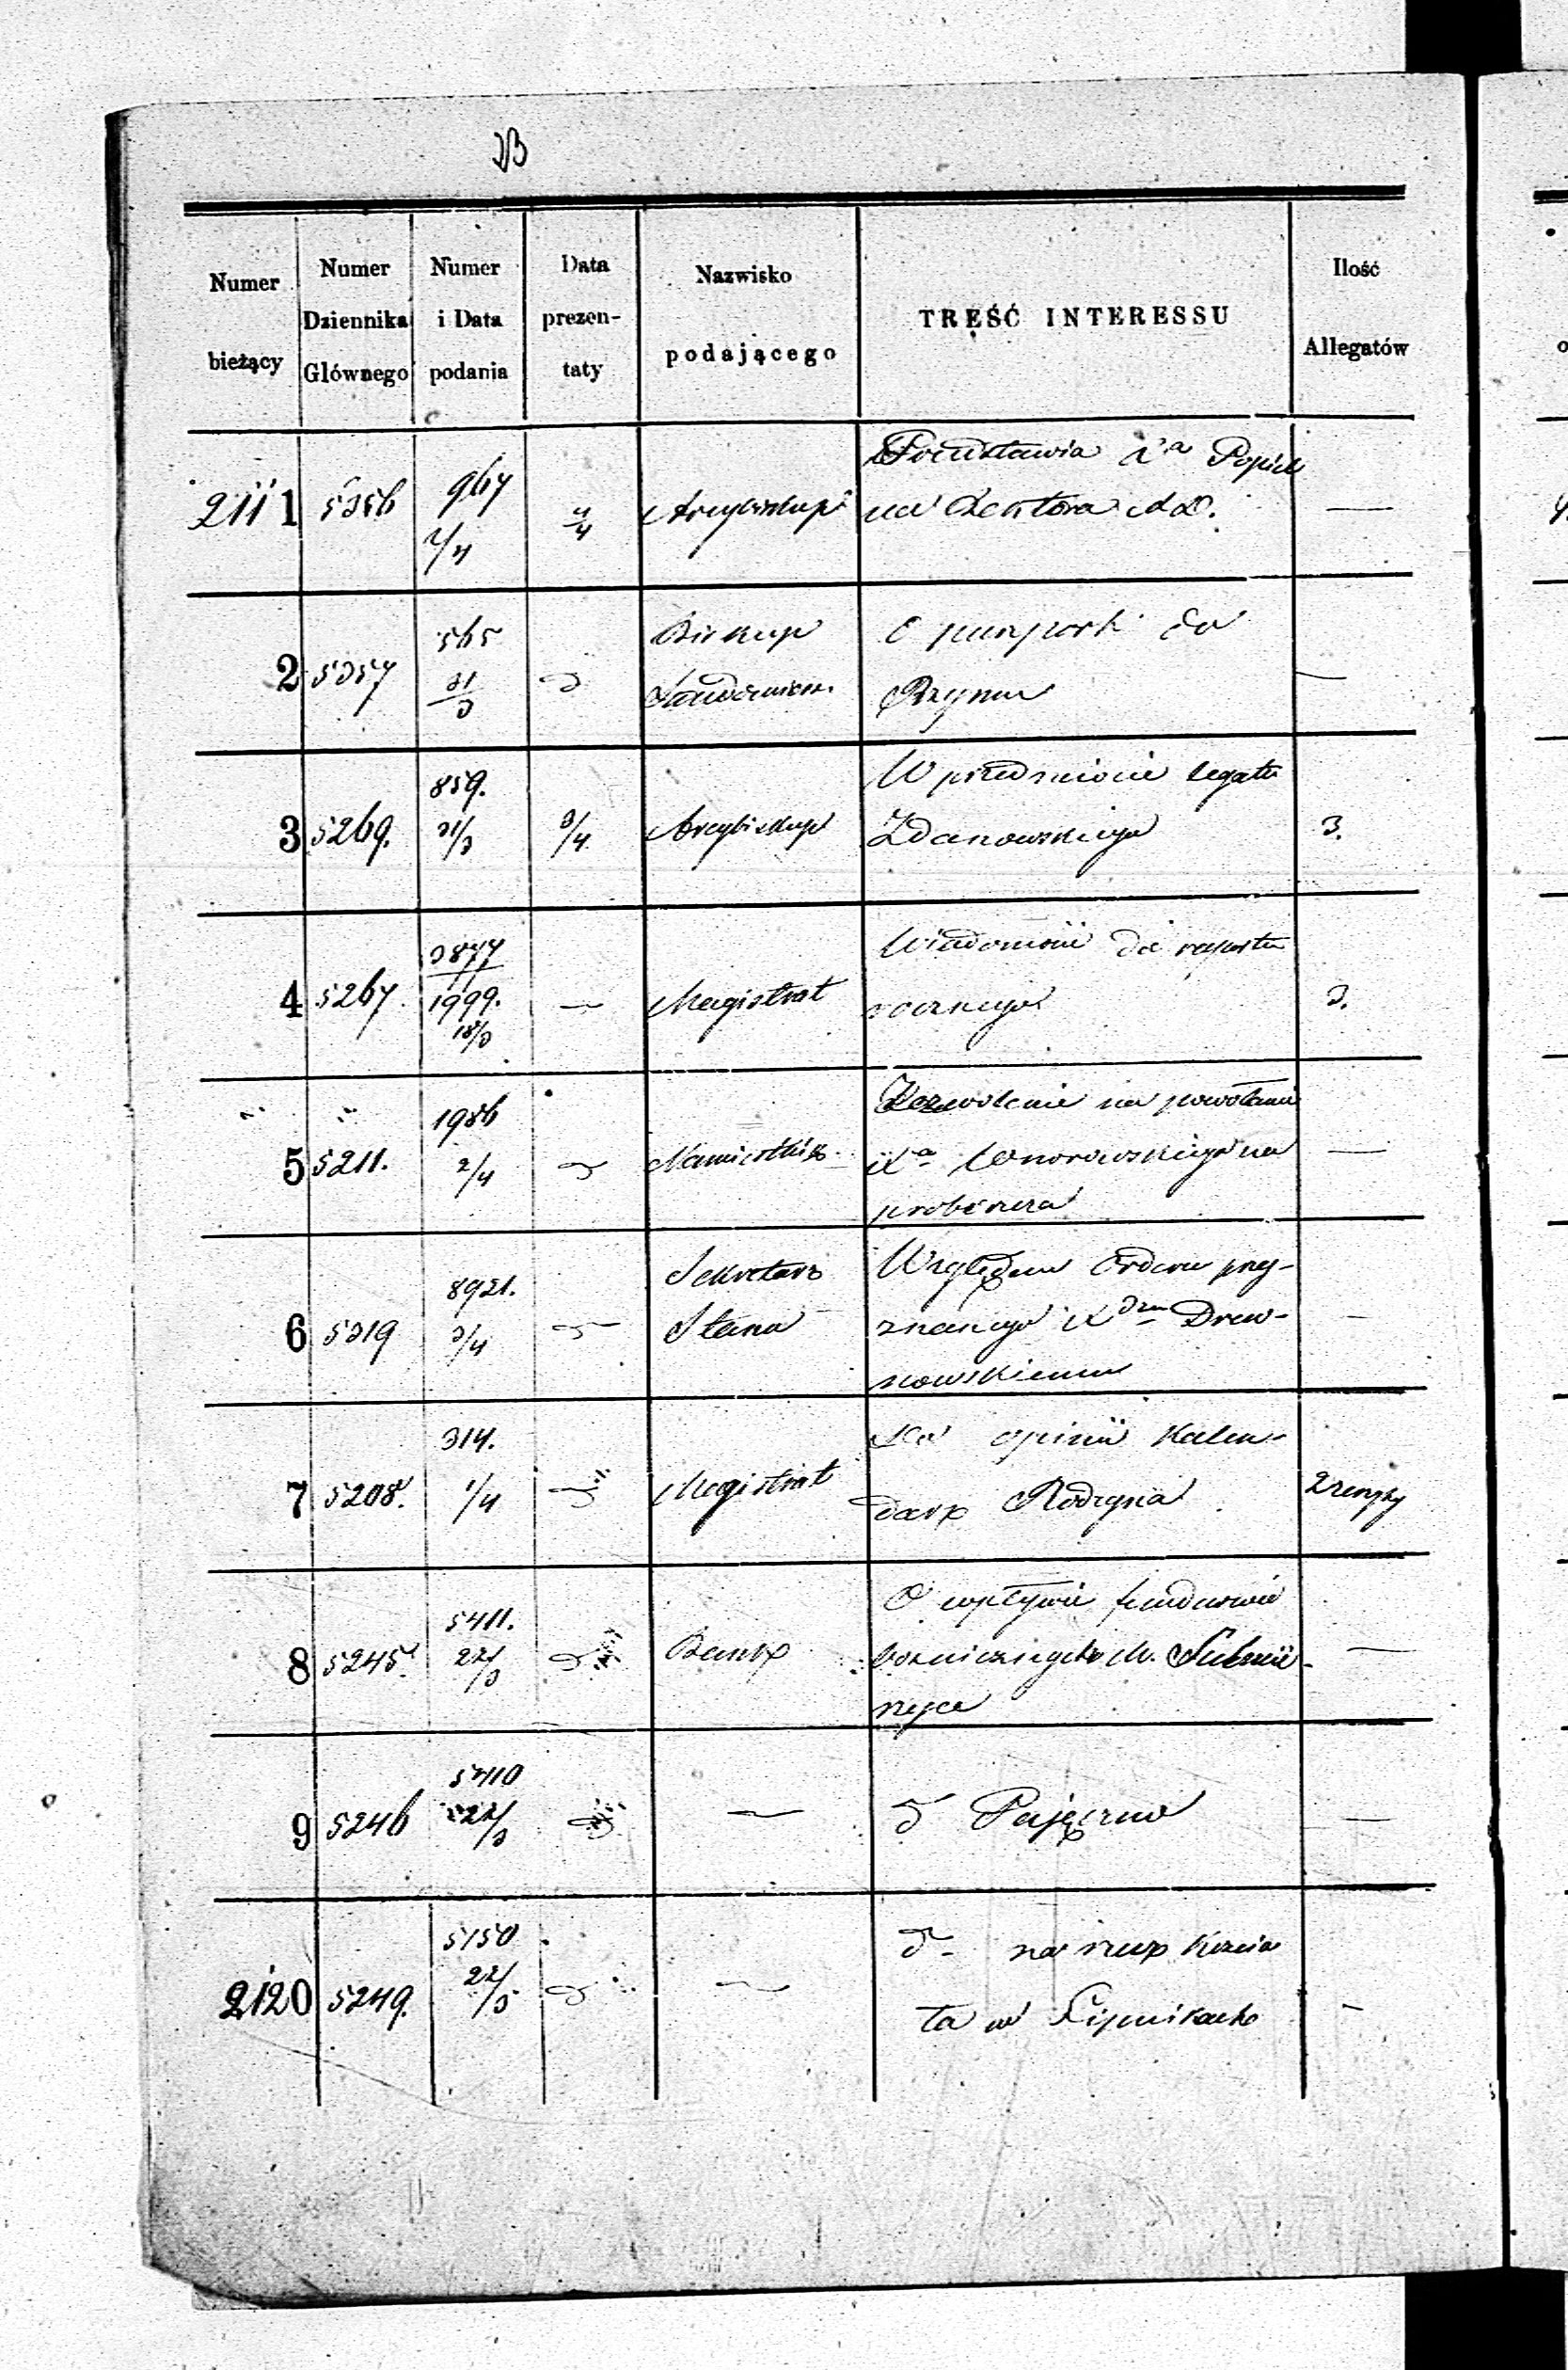 Numer bieżący
Numer Dziennika Głównego
Numer i Data podania
Data prezentaty
Nazwisko podającego
TREŚĆ INTERESSU
Ilość Allegatów
2111 5356 967 2/4 4/4 Arcybiskup Przedstawia Xa Popiel
na Rektora —
2 5357 565 31/3 d Biskup O paszport do
Sandomier. Rzymu —
3 5269. 859. 31/3 3/4 Arcybiskup W przedmiocie legatu
Zdanowskiego 3.
4 5267. 3877 1999. 18/3 — Magistrat Wiadomości do raportu
rocznego 3.
5 5211. 1986 2/4 d Namiestnik Zezwolenie na powołanie
Xa Wnorowskiego na —
proboszcza
6 5319 8921. 3/4 d Sekretarz Względem Orderu przy-
Stanu znanego X Drew- —
nowskiemu
7 5208. 314. 1/4 d Magistrat Do opinii Kalen-
darz Rodzyna 2
8 5245. 5411. 22/3 d Bank O wpływie funduszów
bożniczych M. Sulmie- —
rzyce
9 5246 5410 22/3 d — d Pajęczno —
2120 5249. 5150 22/3 d — d- na rzecz Kościo
ła w Lipnikach —